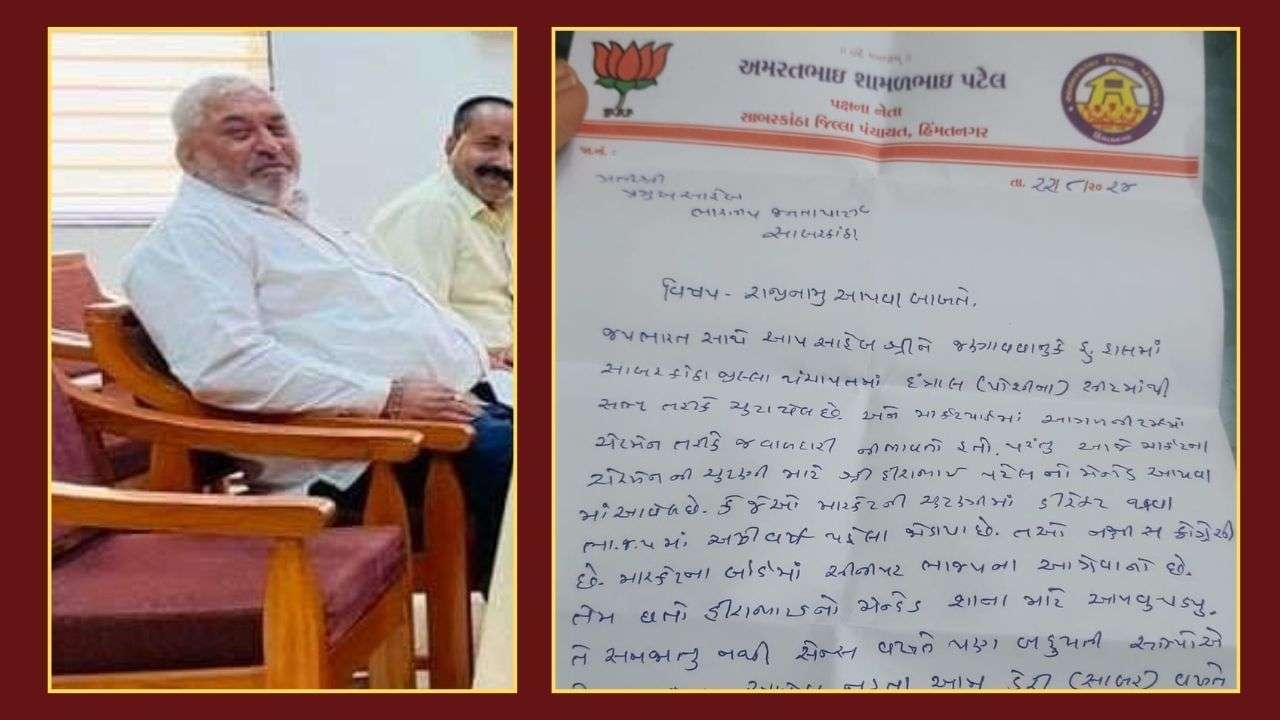 અમરતભાઇ શામળભાઇ પટેલ
પક્ષના નેતા
સાબરકાંઠા જિલ્લા પંચાયત, હિંમતનગર
જા.નં. :
તા. ૨૨/૮/૨૦૨૪
પ્રમુખ સાહેબ
ભારતીય જનતા પાર્ટી
સાબરકાંઠા
વિષય - રાજીનામુ આપવા બાબતે.
જયભારત સાથે આપ સાહેબ શ્રીને જણાવવાનુકે હુ હાલમાં
સાબરકાંઠા જીલ્લા પંચાયતમાં દંત્રાલ (પોશીના) સીટમાંથી
સભ્ય તરીકે ચુટાયેલ છે. અને માર્કેટયાર્ડમાં આગળની ટર્મમાં
ચેરમેન તરીકે જવાબદારી નીભાવતો હતો. પરંતુ આજે માર્કેટના
ચેરમેનની ચુંટણી માટે શ્રી હીરાભાઇ પટેલનો મેન્ડેડ આપવા
માં આવેલ છે. કે જેઓ માર્કેટની ચુટણીમાં ડીરેક્ટર
ભા.જ.પ માં અઢી વર્ષ પહેલા જોડાયા છે. તેઓ કોંગ્રેસી
છે. મારકેટના બોર્ડમાં સીનીયર ભાજપના આગેવાનો છે.
તેમ છતાં હીરાભાઇનો મેન્ડેડ શાના માટે આપવુ પડ્યુ.
તે સમજાતુ નથી સેન્સ વખતે પણ બહુમતી સભ્યોએ
આમ ડેરી (સાબર) વખતે